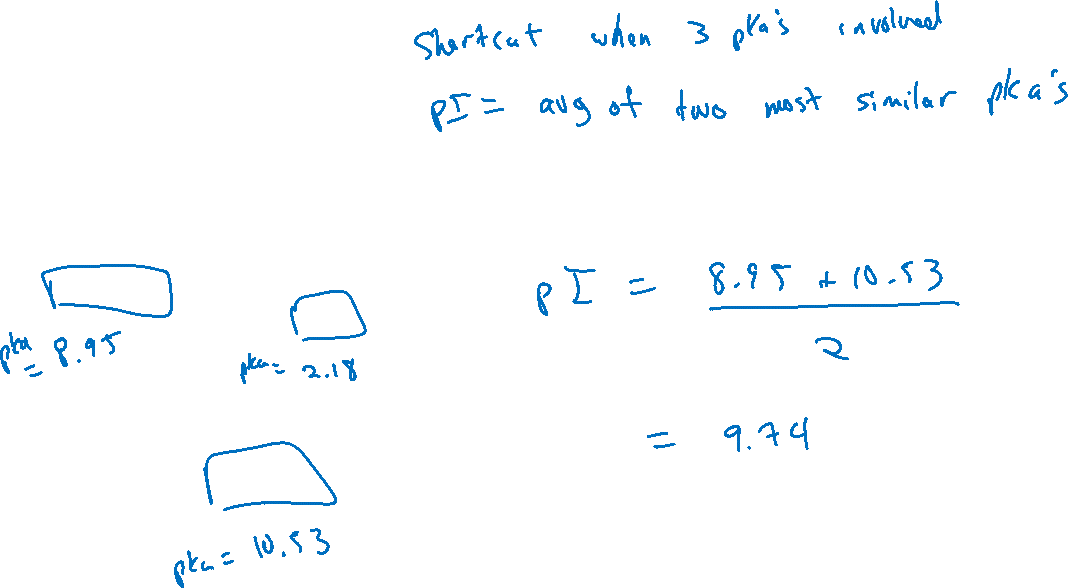 Shortcut when 3 pka's involved
pI = avg of two most similar pka's
pka = 8.95
pka = 2.18
pka = 10.53
pI = 8.95 + 10.53
2
= 9.74